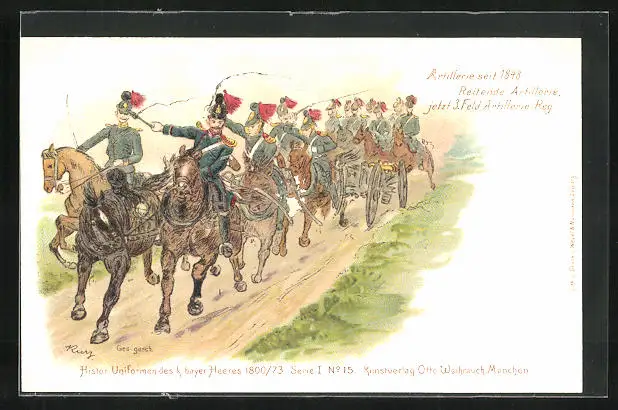 Artillerie seit 1848
Reitende Artillerie,
jetzt 3. Feld Artillerie Reg
Kurz
Ges. gesch.
Histor Uniformen des k. bayer Heeres 1800/73 Serie I No 15. Kunstverlag Otto Weihrauch München